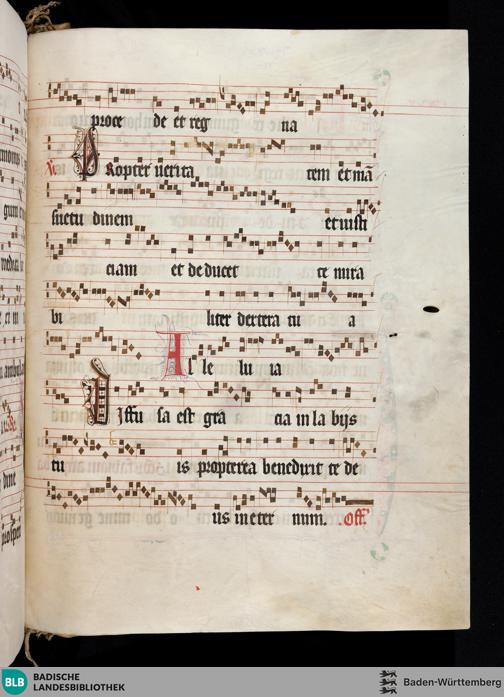 proce de et reg na
Propter verita tem et ma
suetu dinem et iusti
ciam et deducet te mira
bi liter dextera tu a
Al le lu ia
Diffu sa est gra cia in la bijs
tu is propterea benedixit te de
us in eter num. Off.
BLB BADISCHE
LANDESBIBLIOTHEK
Baden-Württemberg